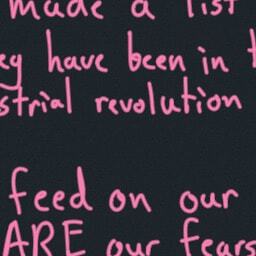 made a list
ey have been in t
strial revolution
feed on our
ARE our fears